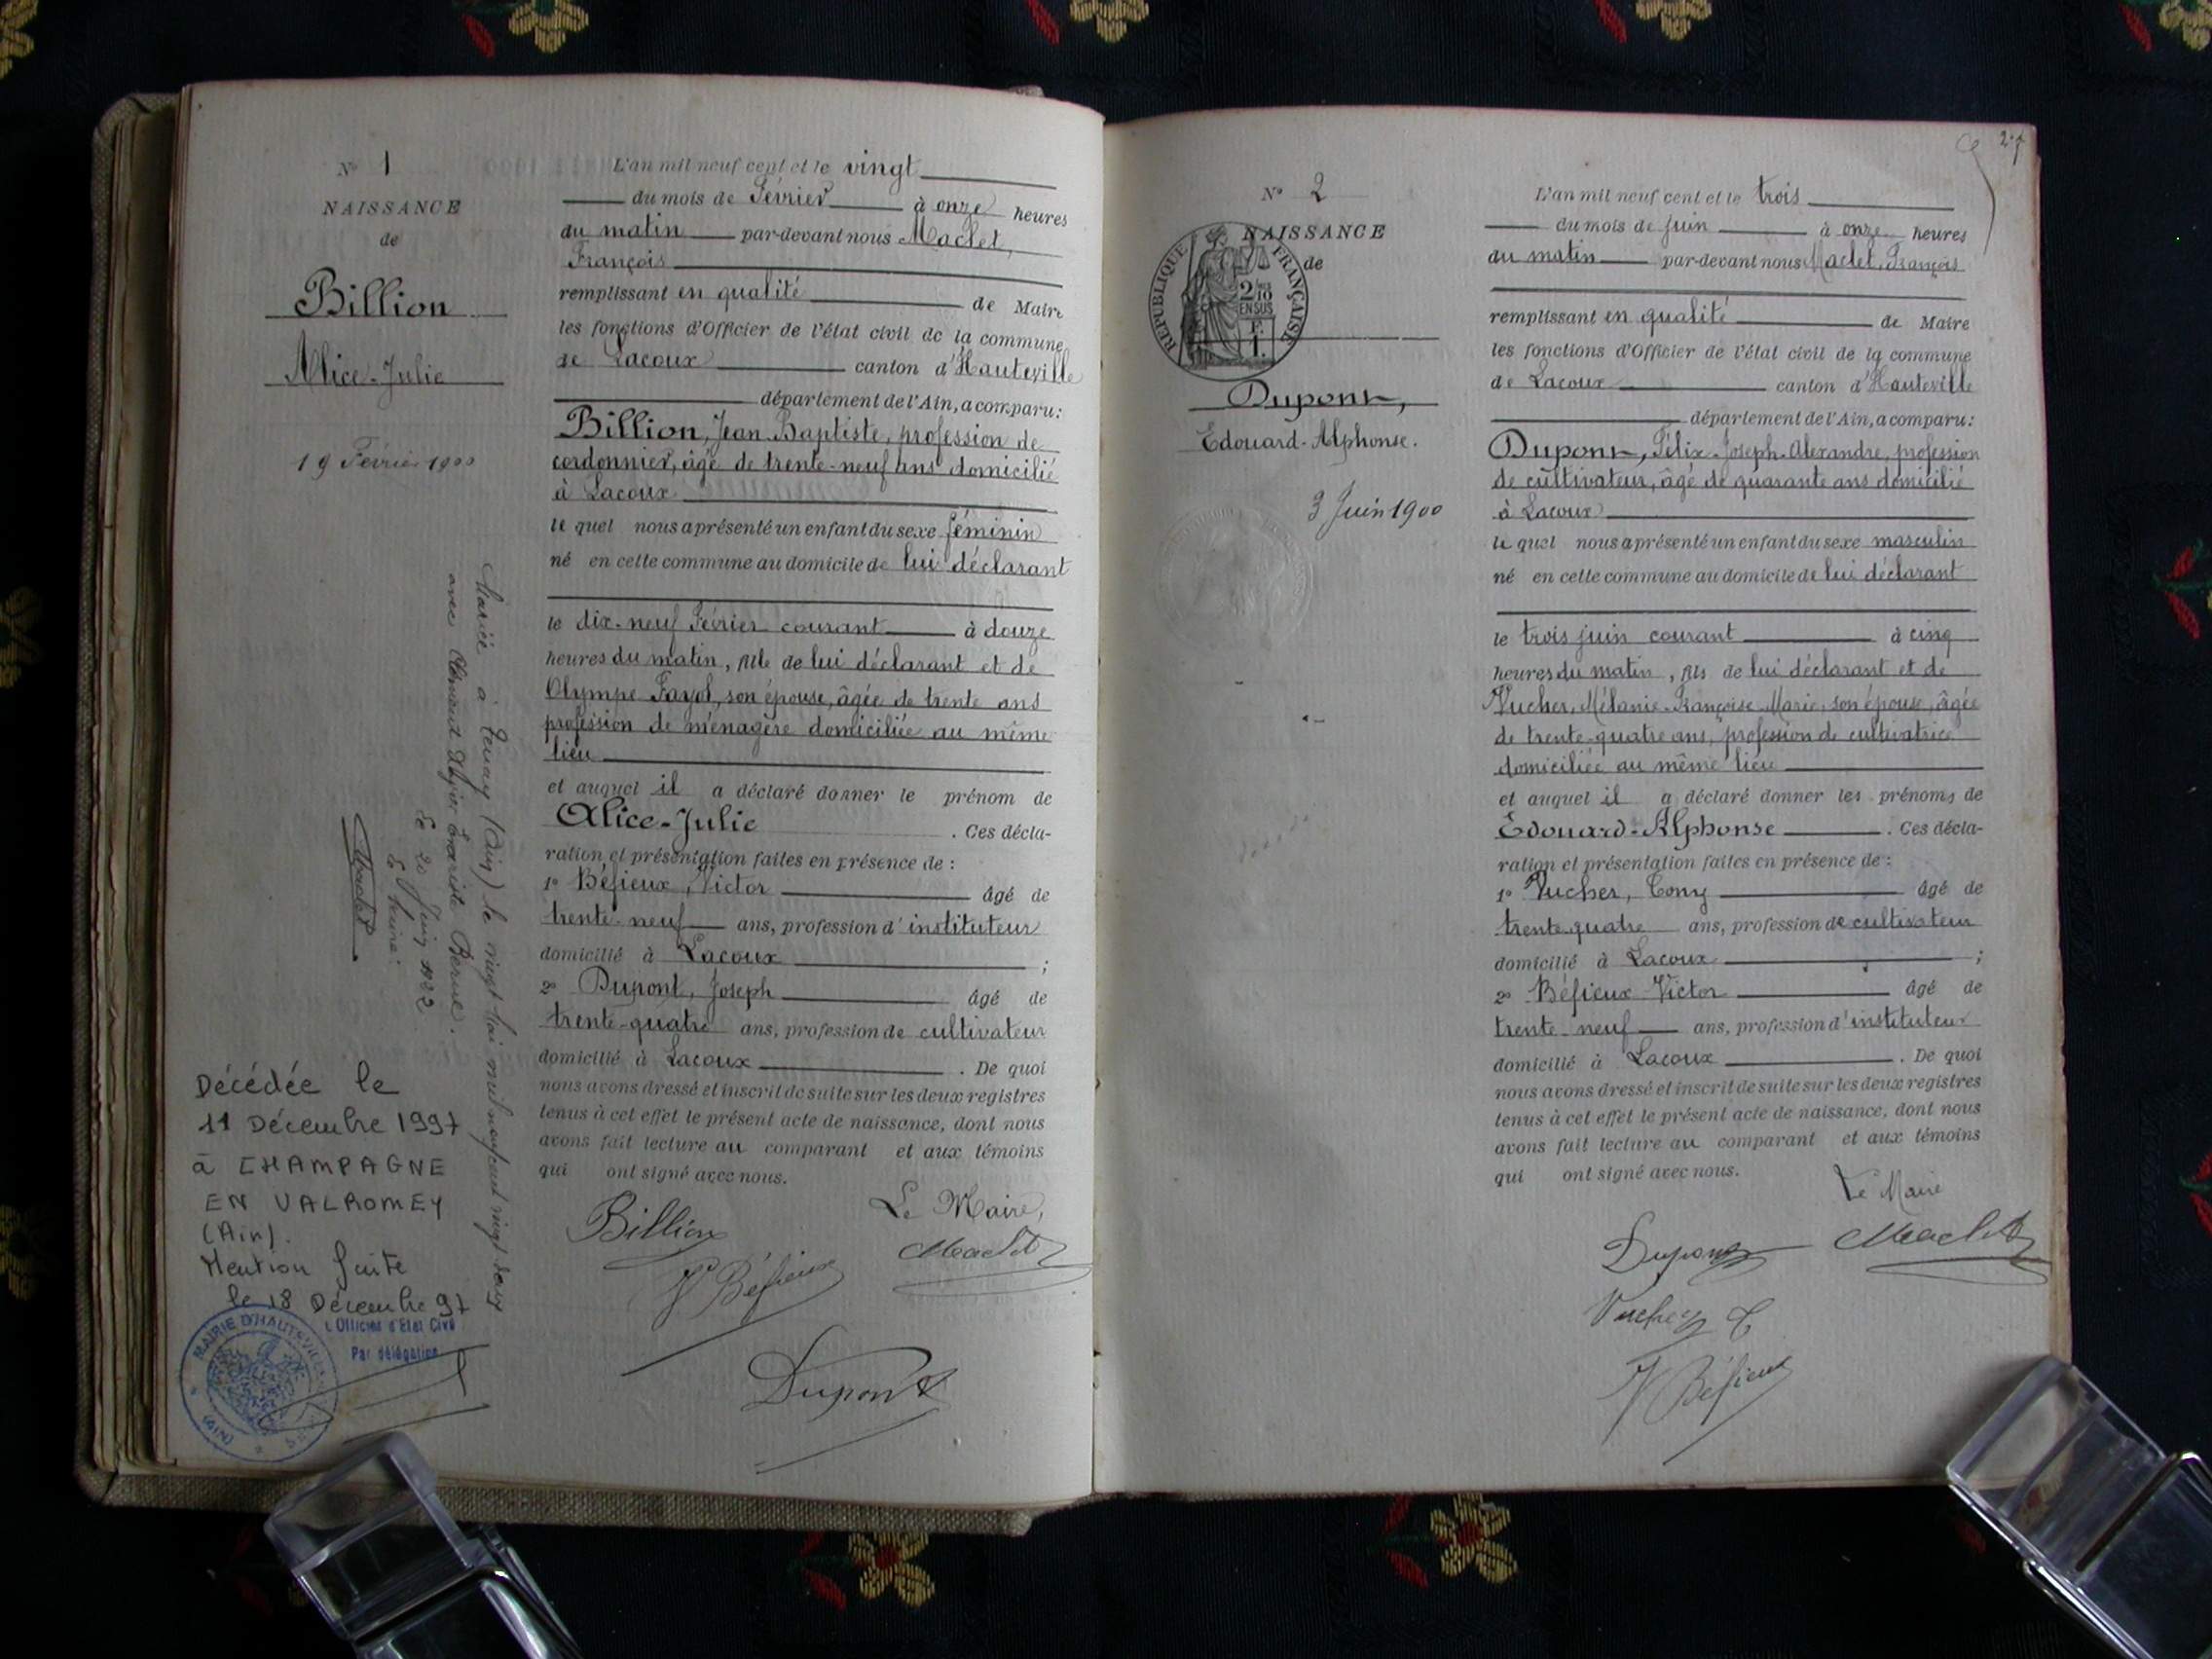 N° 1
NAISSANCE
de
Billion
Alice-Julie
19 Février 1900
Mariée à Tenay (Ain) le vingt mai mil neuf cent vingt deux
avec
Berne.
Le 20 Juin 1922
Le Maire:
Maclet
Décédée le
11 Décembre 1997
à CHAMPAGNE
EN VALROMEY
(Ain).
Mention faite
le 18 Décembre 97
L'Officier d'Etat Civil
Par délégation
MAIRIE D'HAUTEVILLE
(AIN)
L'an mil neuf cent et le vingt
du mois de Février à onze heures
du matin par-devant nous Maclet,
François
remplissant en qualité de Maire
les fonctions d'Officier de l'état civil de la commune
de Lacoux canton d'Hauteville
département de l'Ain, a comparu:
Billion, Jean-Baptiste, profession de
cordonnier, âgé de trente-neuf ans domicilié
à Lacoux
le quel nous a présenté un enfant du sexe féminin
né en cette commune au domicile de lui déclarant
le dix-neuf Février courant à douze
heures du matin, fille de lui déclarant et de
Olympe Fayol, son épouse, âgée de trente ans
profession de ménagère domiciliée au même
lieu
et auquel il a déclaré donner le prénom de
Alice-Julie. Ces décla-
ration et présentation faites en présence de:
1° Béfieux, Victor âgé de
trente-neuf ans, profession d'instituteur
domicilié à Lacoux;
2° Dupont, Joseph âgé de
trente-quatre ans, profession de cultivateur
domicilié à Lacoux. De quoi
nous avons dressé et inscrit de suite sur les deux registres
tenus à cet effet le présent acte de naissance, dont nous
avons fait lecture au comparant et aux témoins
qui ont signé avec nous.
Le Maire,
Billion
Maclet
V Béfieux
Dupont
27
N° 2
NAISSANCE
de
RÉPUBLIQUE FRANÇAISE
2/10
EN SUS
F.
1.
Dupont,
Edouard-Alphonse.
3 Juin 1900
L'an mil neuf cent et le trois
du mois de juin à onze heures
du matin par-devant nous Maclet, François
remplissant en qualité de Maire
les fonctions d'Officier de l'état civil de la commune
de Lacoux canton d'Hauteville
département de l'Ain, a comparu:
Dupont, Félix-Joseph-Alexandre, profession
de cultivateur, âgé de quarante ans domicilié
à Lacoux
le quel nous a présenté un enfant du sexe masculin
né en cette commune au domicile de lui déclarant
le trois juin courant à cinq
heures du matin, fils de lui déclarant et de
Vucher, Mélanie-Françoise-Marie, son épouse, âgée
de trente-quatre ans, profession de cultivatrice
domiciliée au même lieu
et auquel il a déclaré donner les prénoms de
Edouard-Alphonse. Ces décla-
ration et présentation faites en présence de:
1° Vucher, Tony âgé de
trente-quatre ans, profession de cultivateur
domicilié à Lacoux;
2° Béfieux Victor âgé de
trente-neuf ans, profession d'instituteur
domicilié à Lacoux. De quoi
nous avons dressé et inscrit de suite sur les deux registres
tenus à cet effet le présent acte de naissance, dont nous
avons fait lecture au comparant et aux témoins
qui ont signé avec nous.
Le Maire
Dupont
Maclet
Vucher T
V Béfieux